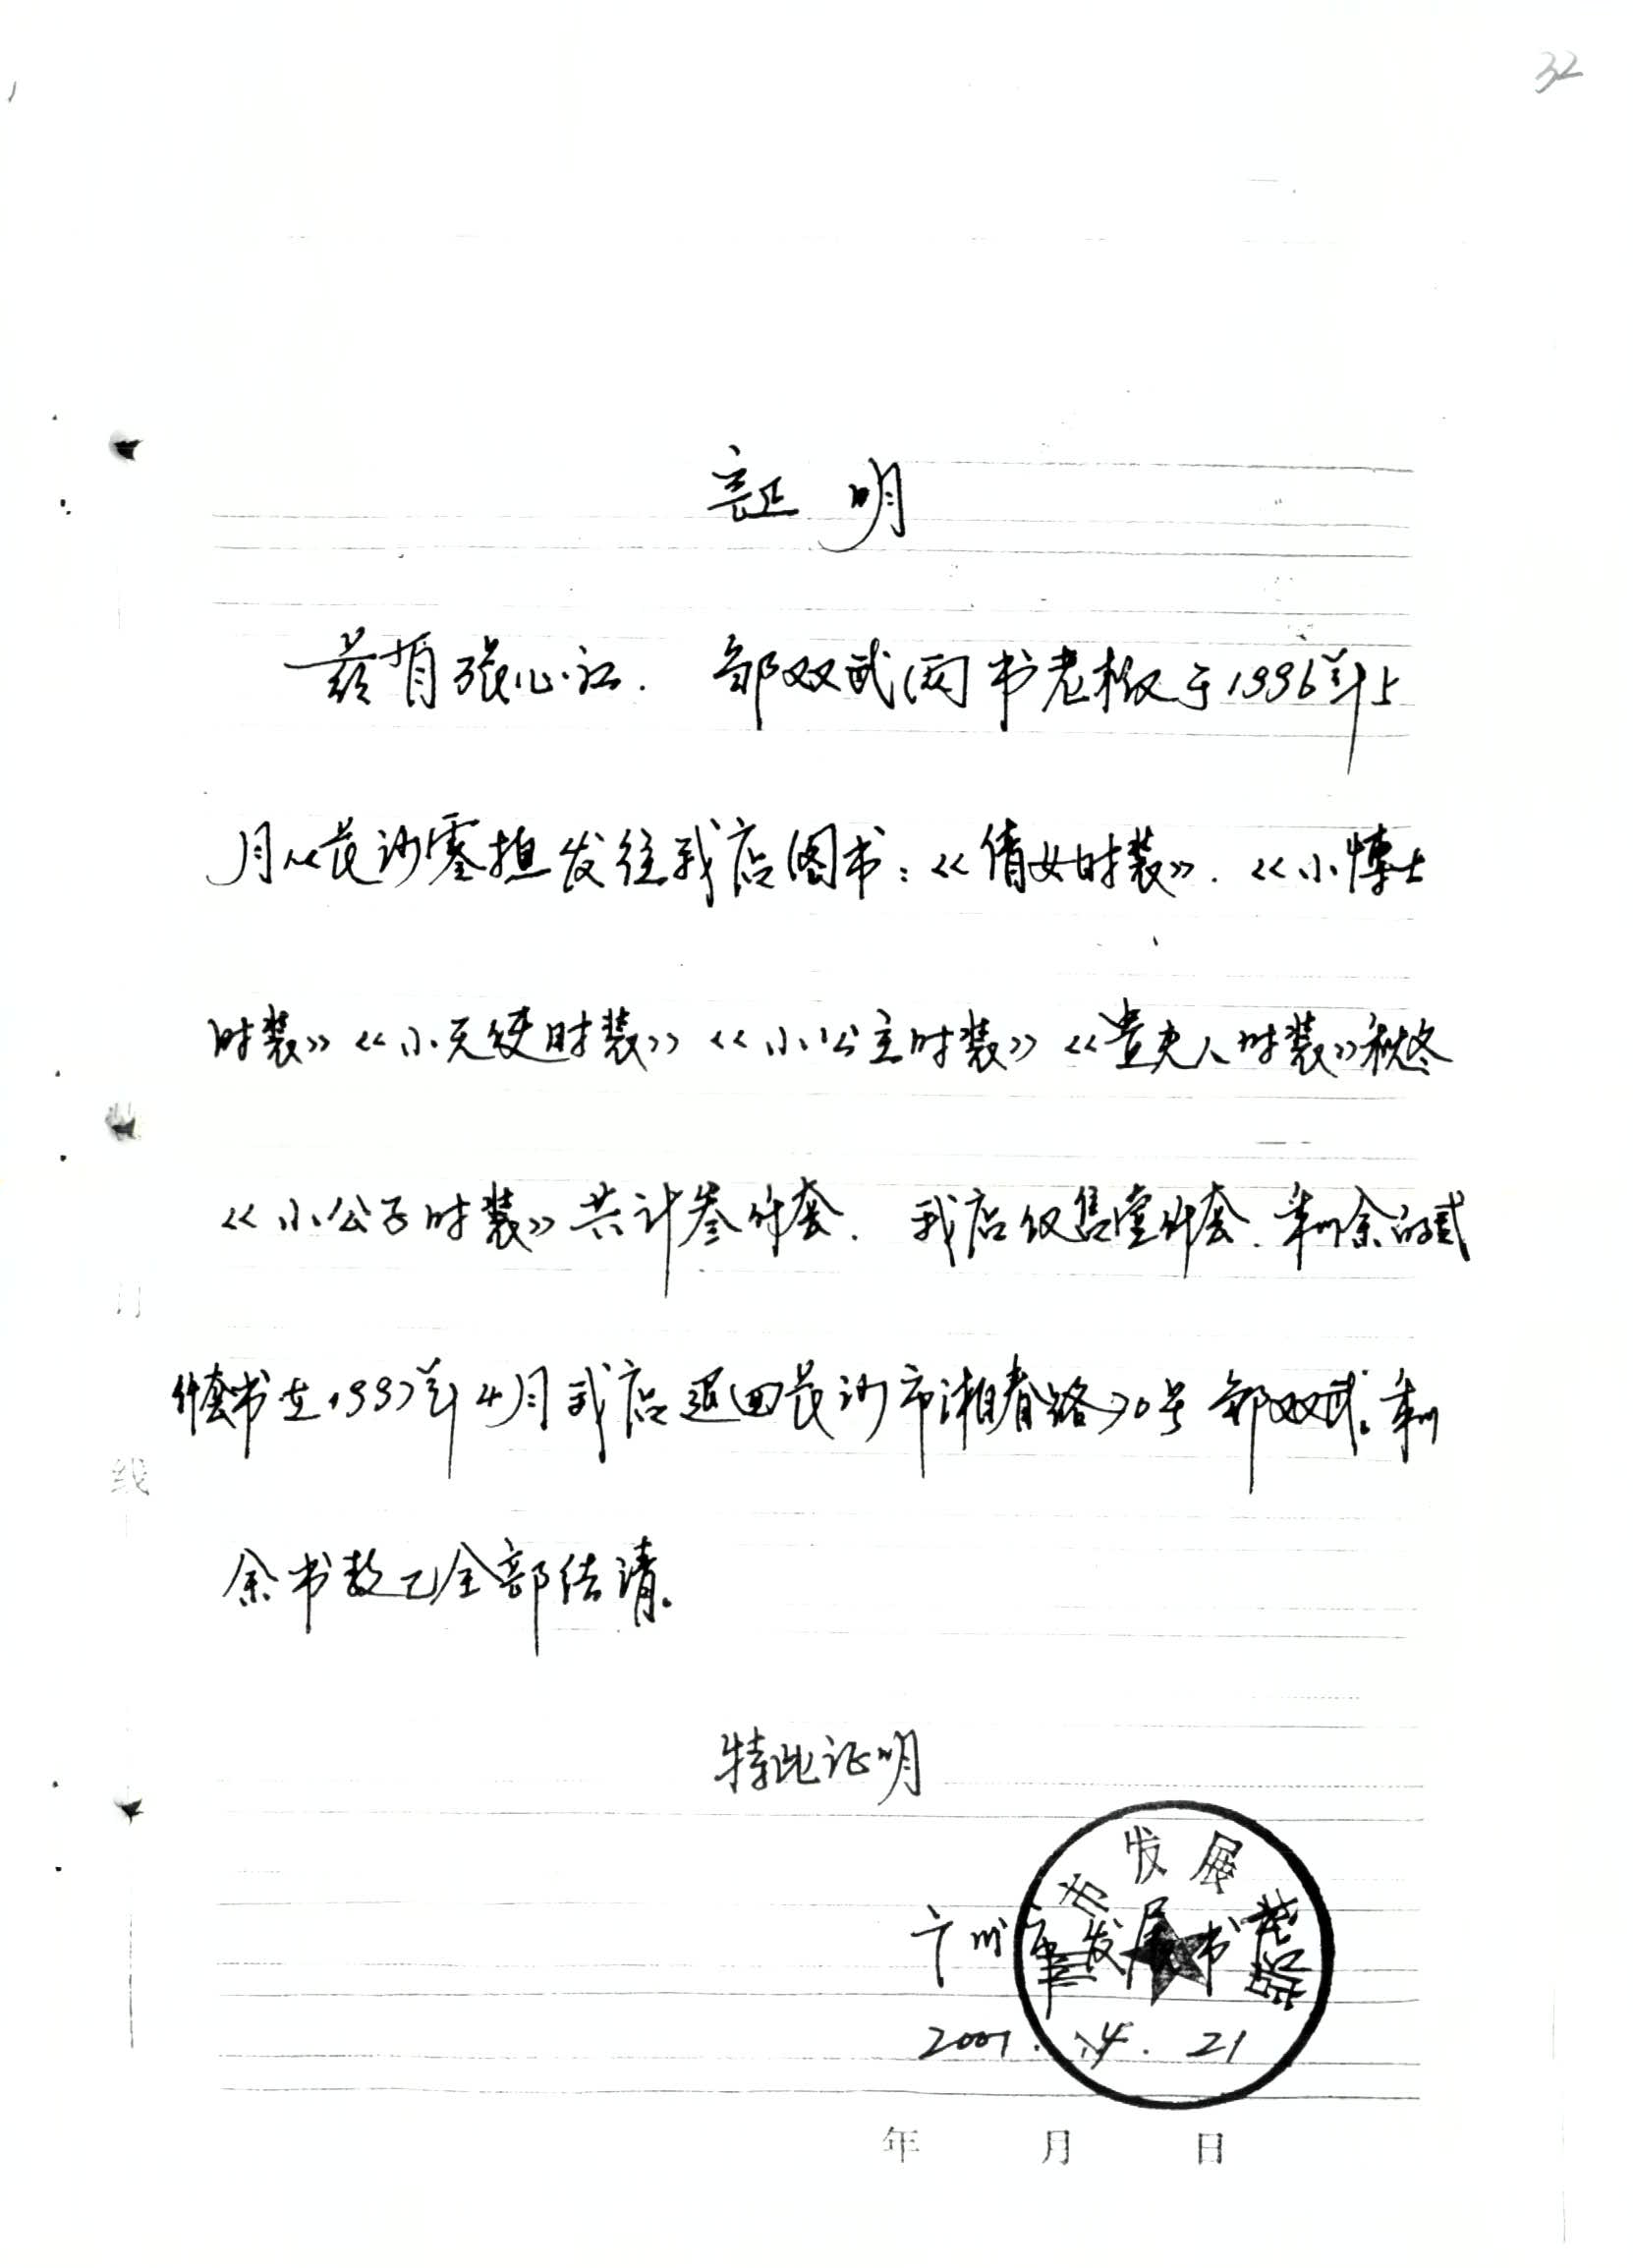 32
証明
兹有张心江. 邹双武俩书老板于1996年5
月从长沙零担发往我店图书:《倩女时装》.《小博士
时装》《小天使时装》《小公主时装》《贵夫人时装》秋冬
《小公子时装》共计叁仟套. 我店仅售壹仟套. 剩余的贰
仟套书在1997年4月我店退回长沙市湘春路70号邹双武。剩
余书款已全部结清。
特此证明
市发展
广州市发展书
2001. 4. 21
年 月 日
线